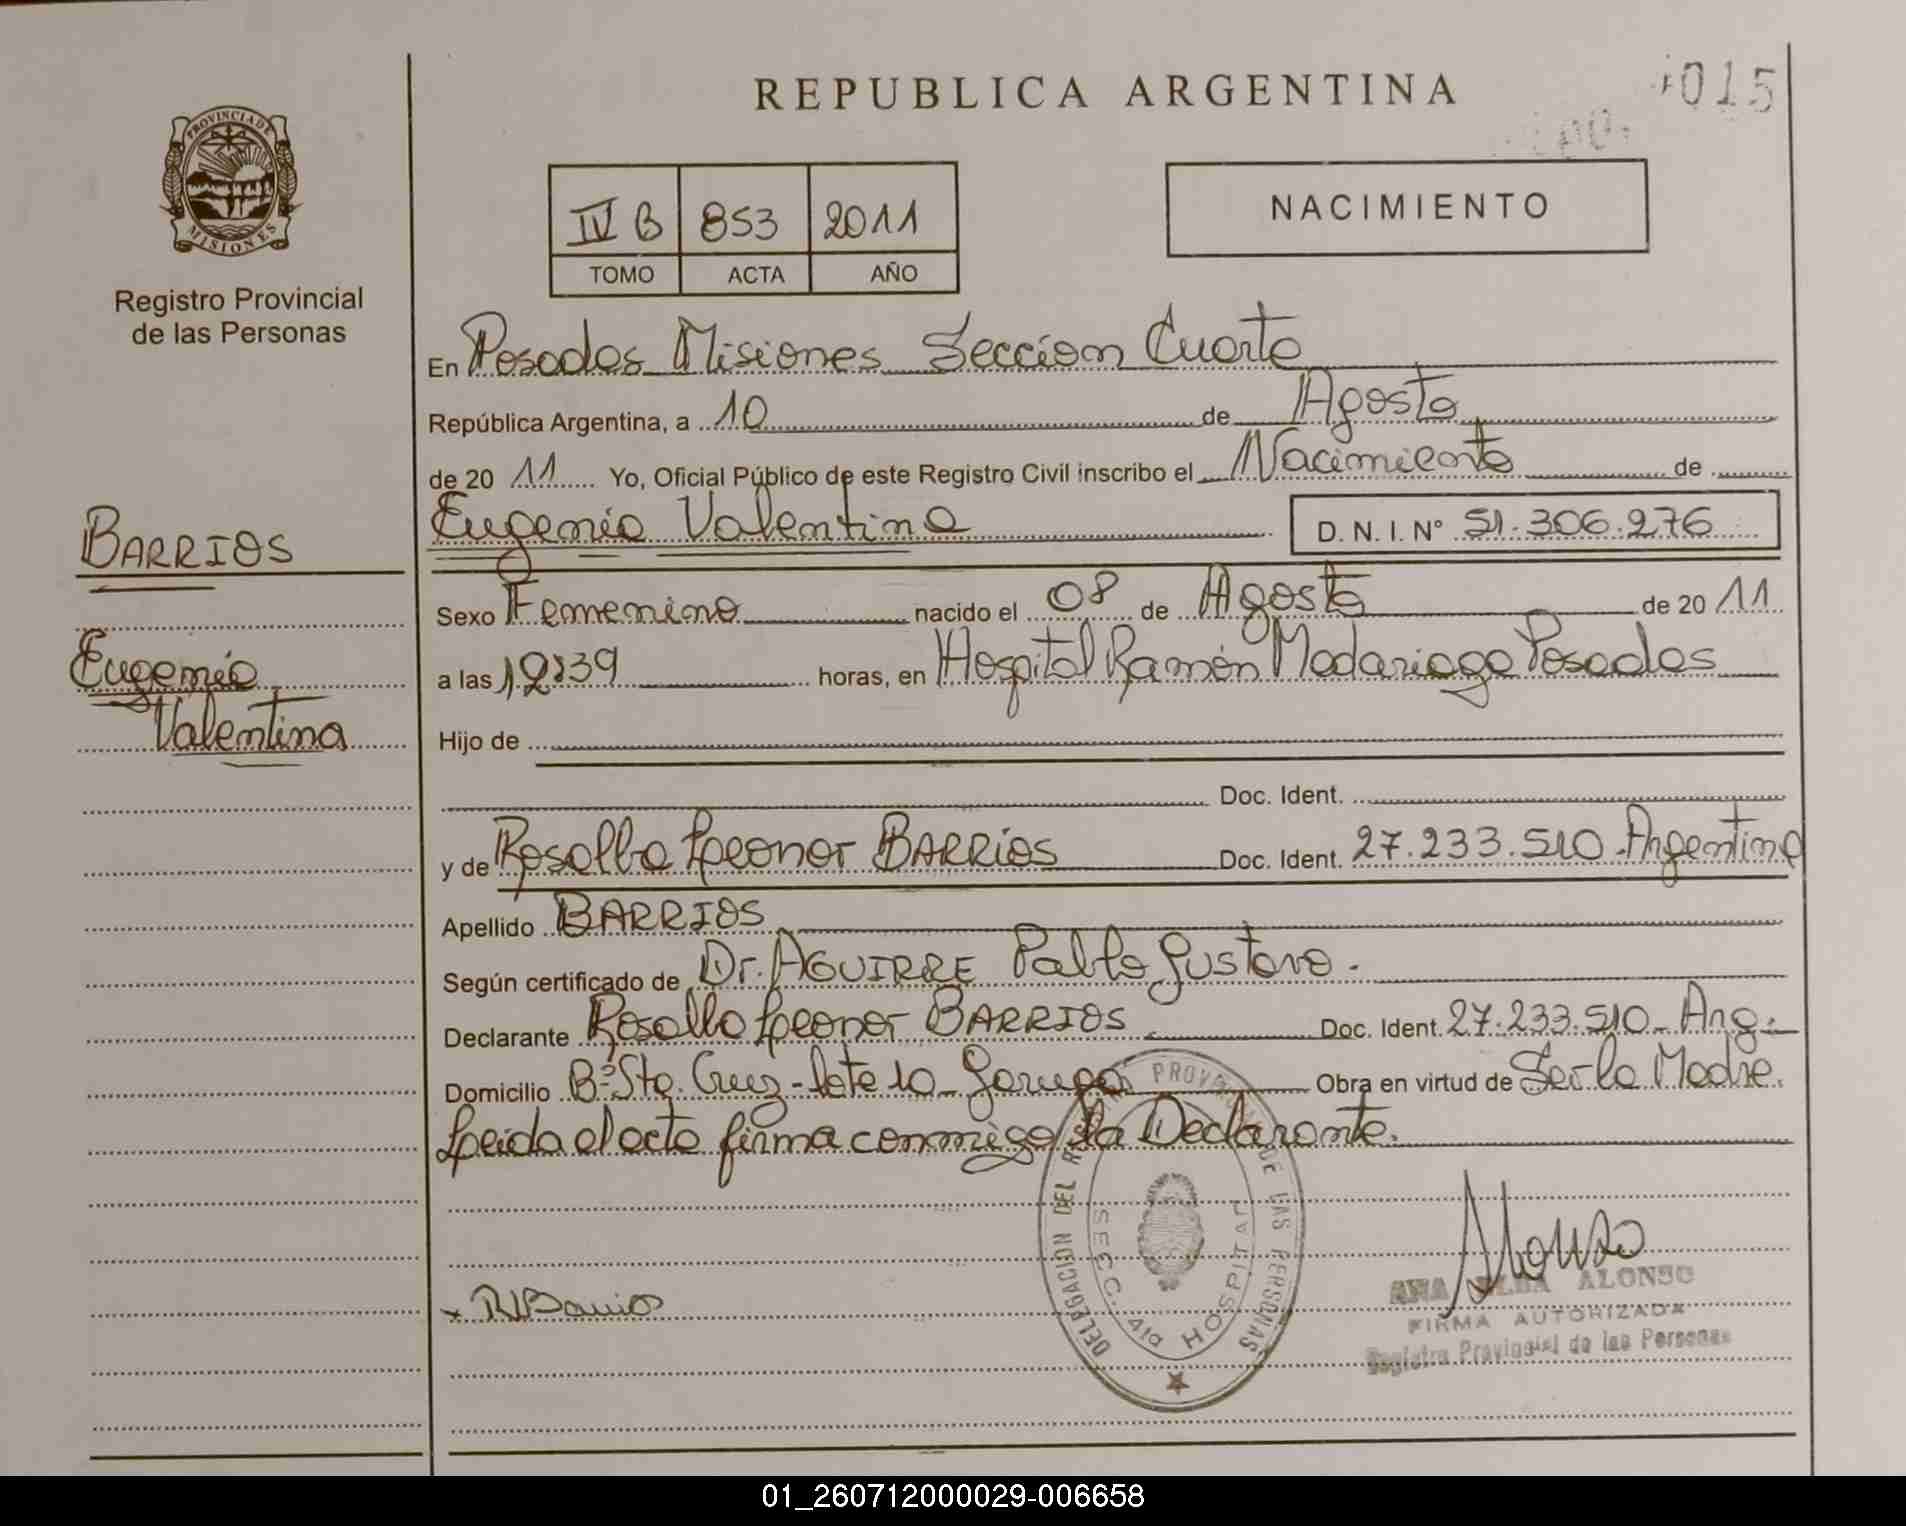 REPUBLICA ARGENTINA
015
PROVINCIA DE
MISIONES
Registro Provincial
de las Personas
IV B 853 2011
TOMO ACTA AÑO
NACIMIENTO
En Posadas Misiones Seccion Cuarta
República Argentina, a 10 de Agosto
de 20 11 Yo, Oficial Público de este Registro Civil inscribo el Nacimiento de
Eugenia Valentina D. N. I. Nº 51.306.276
BARRIOS
Eugenia
Valentina
Sexo Femenino nacido el 08 de Agosto de 20 11
a las 12:39 horas, en Hospital Ramón Madariaga Posadas
Hijo de
Doc. Ident.
y de Rosalba Leonor BARRIOS Doc. Ident. 27.233.510 Argentina
Apellido BARRIOS
Según certificado de Dr. AGUIRRE Pablo Gustavo.
Declarante Rosalba Leonor BARRIOS Doc. Ident. 27.233.510 Arg.
Domicilio Bº Sta. Cruz - lote 10 - Garupá Obra en virtud de Ser la Madre.
Leida el acta firma conmigo la Declarante.
DELEGACION DEL PROVINCIAL DE LAS PERSONAS
SECC. 4ta HOSPITAL
x RLBarrios
Alonso
ANA ALONSO
FIRMA AUTORIZADA
Registro Provincial de las Personas
01_260712000029-006658